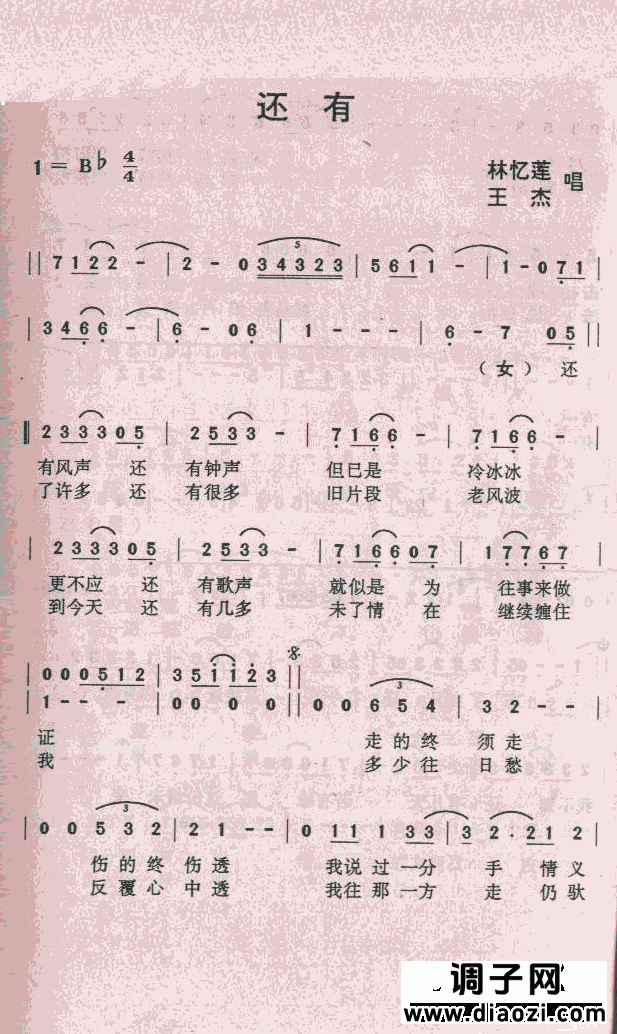 还有
1 = B♭ 4/4
林忆莲
王杰 唱
|| 7 1 2 2 - | 2 - 0 3 4 3 2 3 | 5 6 1 1 - | 1 - 0 7 1 |
3 4 6 6 - | 6 - 0 6 | 1 - - - | 6 - 7 0 5 ||
（女）还
|| 2 3 3 3 0 5 | 2 5 3 3 - | 7 1 6 6 - | 7 1 6 6 - |
有风声 还 有钟声 但已是 冷冰冰
了许多 还 有很多 旧片段 老风波
| 2 3 3 3 0 5 | 2 5 3 3 - | 7 1 6 6 0 7 | 1 7 7 6 7 |
更不应 还 有歌声 就似是 为 往事来做
到今天 还 有几多 未了情 在 继续缠住
| 0 0 0 5 1 2 | 3 5 1 1 2 3 ||
| 1 - - - | 0 0 0 0 || 0 0 6 5 4 | 3 2 - - |
证 走的终 须走
我 多少往 日愁
| 0 0 5 3 2 | 2 1 - - | 0 1 1 1 3 3 | 3 2 . 2 1 2 |
伤的终 伤透 我说过一分 手 情义
反覆心 中透 我往那一方 走 仍驮
调子网
www.diaozi.com